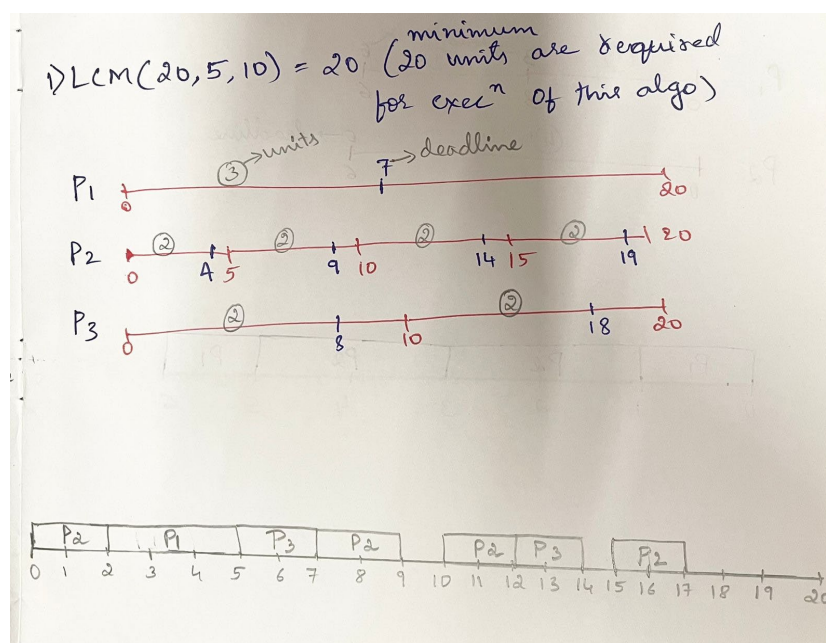 minimum
1) LCM(20,5,10) = 20 (20 units are required
for execⁿ of this algo)
3 → units 7 → deadline
P1 0 20
P2 2 2 2 2
0 4 5 9 10 14 15 19 20
P3 2 2
0 8 10 18 20
P2 P1 P3 P2 P2 P3 P2
0 1 2 3 4 5 6 7 8 9 10 11 12 13 14 15 16 17 18 19 20